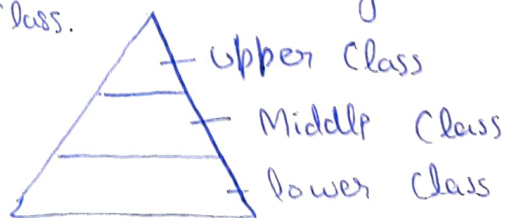 lass.
upper Class
Middle Class
lower Class